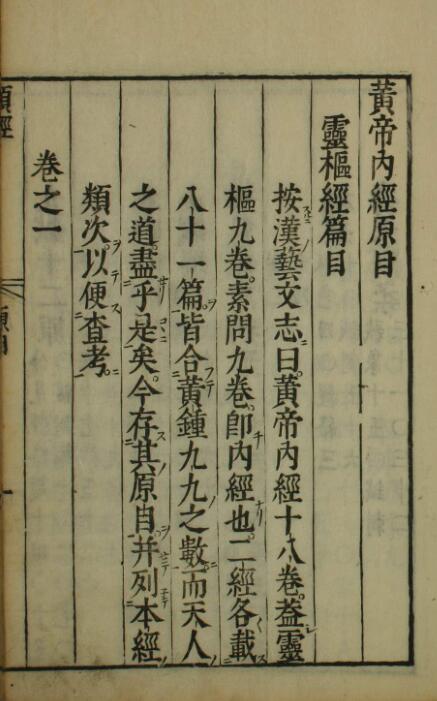 黃帝內經原目
靈樞經篇目
按漢藝文志曰黃帝內經十八卷葢靈
樞九卷素問九卷卽內經也二經各載
八十一篇皆合黃鍾九九之數而天人
之道盡乎是矣今存其原目并列本經
類次以便查考
卷之一
類經
原目
一